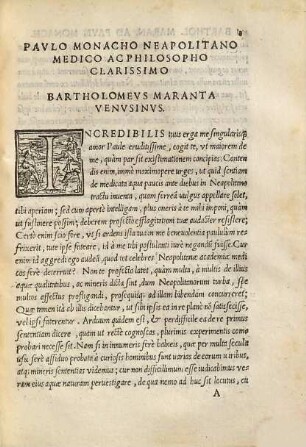 PAVLO MONACHO NEAPOLITANO
MEDICO AC PHILOSOPHO
CLARISSIMO
BARTHOLOMEVS MARANTA
VENVSINVS.
INCREDIBILIS tuus erga me singularisq;
amor Paule eruditissime, cogit te, ut maiorem de
me, quàm par sit existimationem concipias: Conten
dis enim, immò maximopere urges, ut quid sentiam
de medicata aqua paucis ante diebus in Neapolitano
tractu inuenta, quam ferreã uulgus appellare solet,
tibi aperiam; sed cum apertè intelligam, plus oneris à te mihi imponi, quàm
ut sustinere possim; deberem profectò efflagitationi tuæ audacter resistere;
Certò enim scio fore, ut si ardens ista tua in me beneuolentia paululùm re
frixerit, tute ipse fateare, id à me tibi postulanti iure negandũ fuisse. Cur
enim id aggrediar ego adhuc, quod tot celebres Neapolitanæ academiæ medi
cos ferè deterruit? Non te profectò latet, quàm multa, à multis de illius
aquæ qualitatibus, ac mineris dicta sint, dum Neapolitanorum turba, seu
multos effectus profligandi, profusiq; ad illam bibendam concurreret;
Quę omnia ità ab illis dicebantur, ut sin ipsis et in re planè nõ satisfecisse,
vel ipsi faterentur. Arduum quidem est, & perdifficile ea de re primùm
sententiam dicere, quam ut rectè cognoscas, plurimis experimentis como
probari necesse sit. Nam in innumeris ferè balneis, quæ per multa secula
usu ferè assiduo probata à curiosis hominibus sunt uarios de eorum uiribus,
atq; mineris sententias videmus; cur non difficillimum esse iudicabimus ve
ram eius aquæ naturam peruestigare, de qua nemo ad huc sit locutus, cũ
A